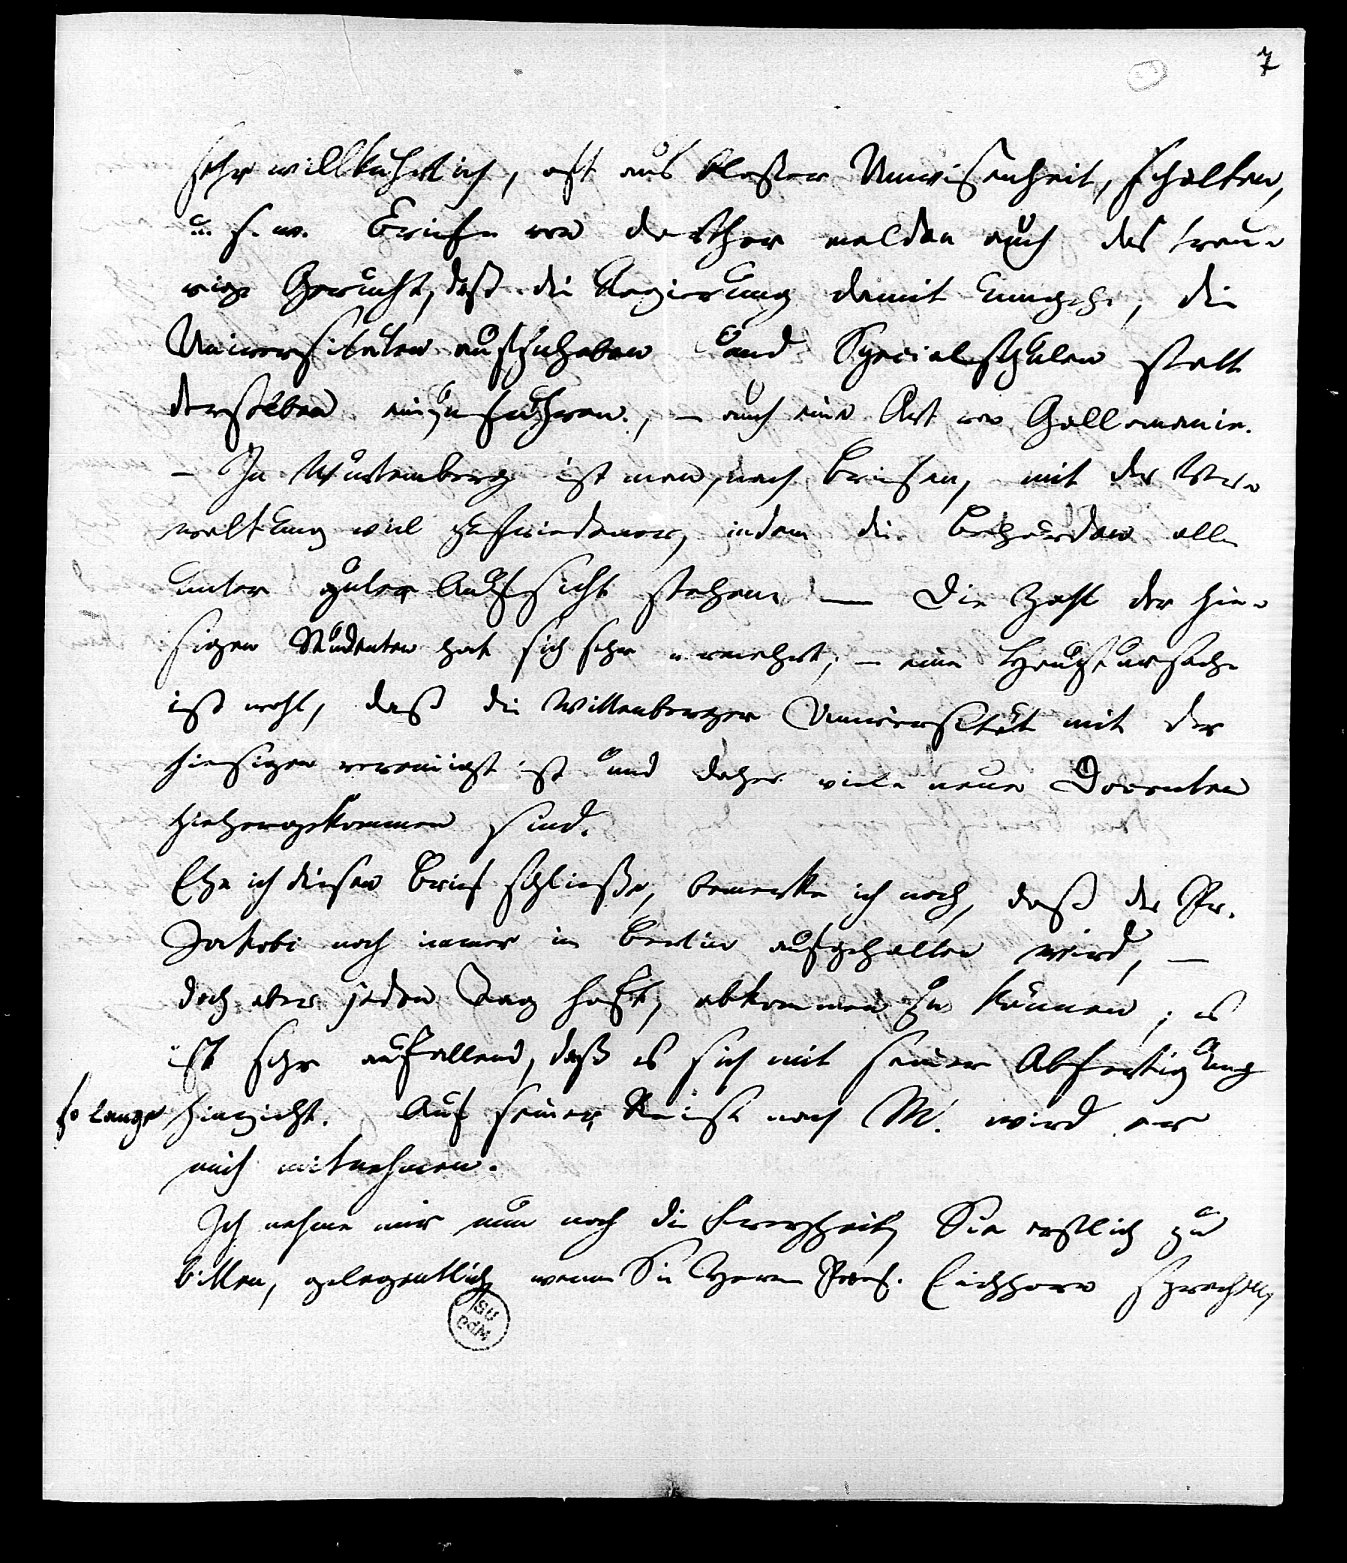 7
sehr willkührlich, oft aus bloßer Unwissenheit, schalten,
u. s. w. Briefe von dorther melden auch das trau-
rige Gerücht, daß die Regierung damit umgehe, die
Universitäten aufzuheben und Specialschulen statt
derselben einzuführen, – auch eine Art von Gallomanie.
– In Würtemberg ist man, nach Briefen, mit der Ver-
waltung viel zufriedener, indem die Behörden alle
unter guter Aufsicht stehen. — Die Zahl der hie-
sigen Studenten hat sich sehr vermehrt; – eine Hauptursache
ist wohl, daß die Wittenberger Universität mit der
hiesigen vereinigt ist und daher viele neue Docenten
hiehergekommen sind.
Ehe ich diesen Brief schließe, bemerke ich noch, daß der Pr.
Jakobi noch immer in Berlin aufgehalten wird, —
doch aber jeden Tag hofft, abkommen zu können; es
ist sehr auffallend, daß es sich mit seiner Abfertigung
so lange hinzieht. Auf seiner Reise nach M. wird er
mich mitnehmen.
Ich nehme mir nun noch die Freyheit, Sie erstlich zu
bitten, gelegentlich, wenn Sie Herrn Prof. Eichhorn sprechen,